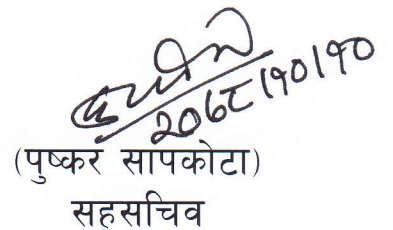 २०६८।१०।१०
(पुष्कर सापकोटा)
सहसचिव